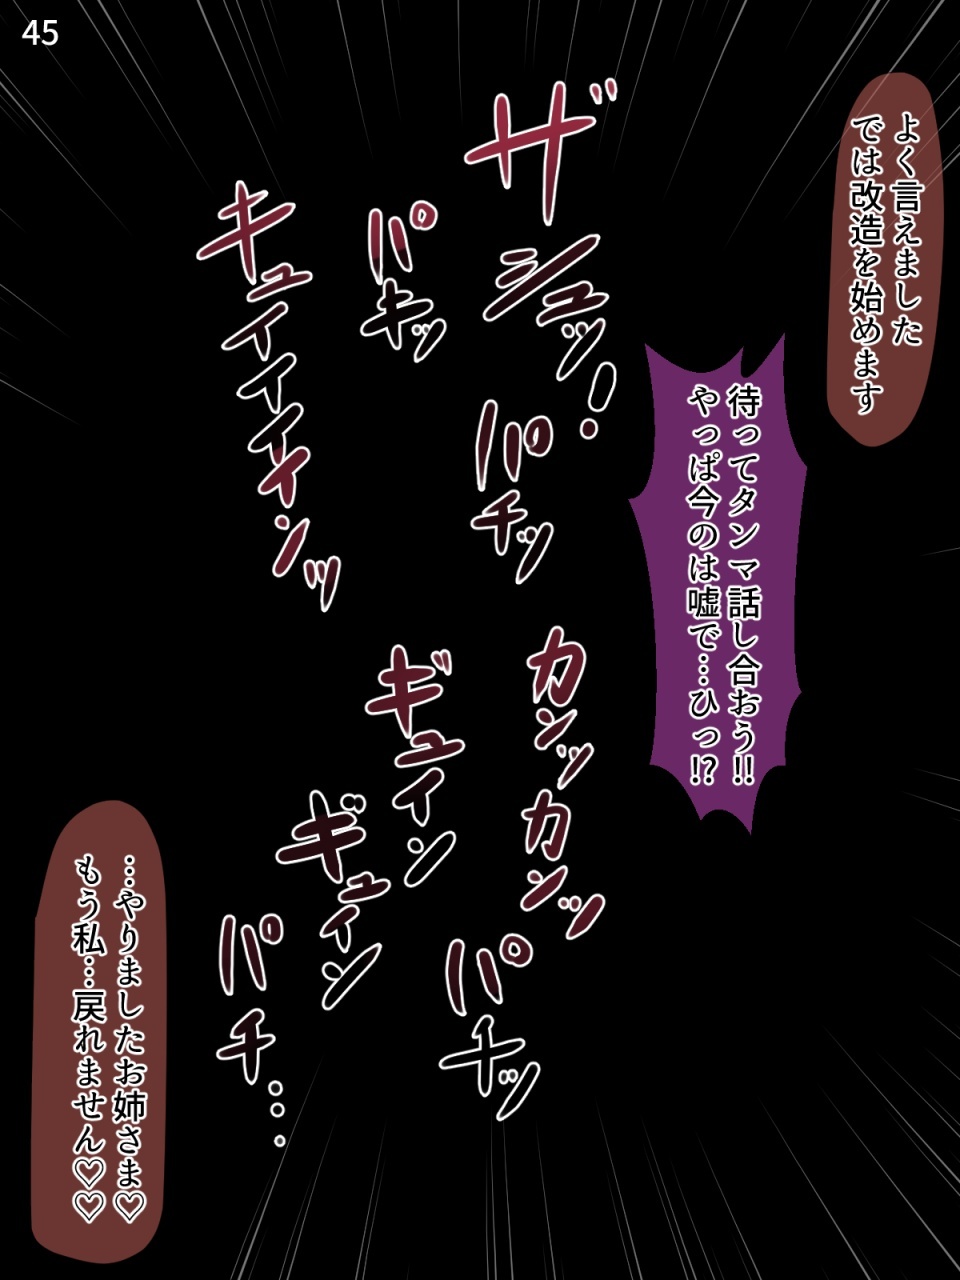 45
よく言えました
では改造を始めます
待ってタンマ話し合おう!!
やっぱ今のは嘘で…ひっ!?
ザシュッ!
パキッ
キュイイイインッ
パチッ
カンッカンッ
ギュイン
ギュイン
パチッ
パチ…
…やりましたお姉さま♡
もう私…戻れません♡♡